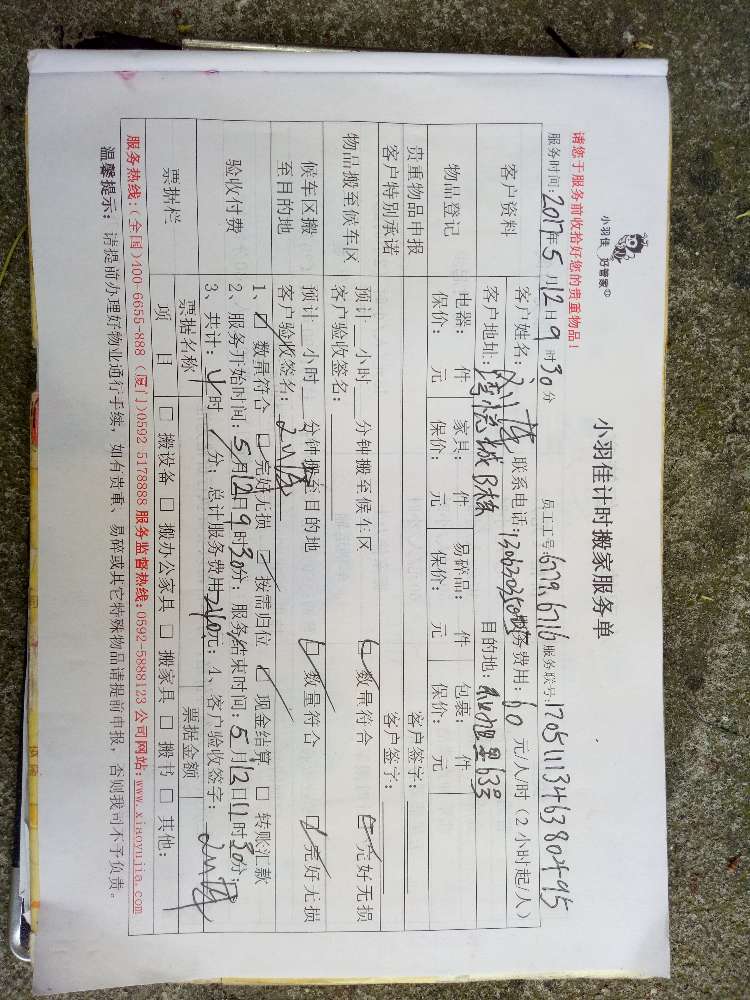 小羽佳 好管家
小羽佳计时搬家服务单
请您于服务前收拾好您的贵重物品！
服务时间：2017年5月12日9时30分 员工工号：6779、6716 服务联号：17051113463802495
客户资料 客户姓名： 联系电话： 服务费用：60元/人/时（2小时起/人）
客户地址：湾悦城B栋 目的地：63号
物品登记 电器： 件 家具： 件 易碎品： 件 包裹： 件
保价： 元 保价： 元 保价： 元 保价： 元
贵重物品申报 客户签字：
客户特别承诺 客户签字：
物品搬至候车区 预计 小时 分钟搬至候车区 ☑ 数量符合 ☑ 完好无损
客户验收签名：
候车区搬至目的地 预计 小时 分钟搬至目的地 ☑ 数量符合 ☑ 完好无损
客户验收签名：
验收付费 1、☑ 数量符合 ☑ 完好无损 ☑ 按需归位 ☑ 现金结算 □ 转账汇款
2、服务开始时间：5月12日9时30分；服务结束时间：5月12日11时30分；
3、共计：4时/分；总计服务费用240元；4、客户验收签字：
票据栏 票据名称 票据金额
项 目 □ 搬设备 □ 搬办公家具 □ 搬家具 □ 搬书 □ 其他：
服务热线：(全国)400-6655-888 (厦门)0592-5178888 服务监督热线：0592-5888123 公司网站：www.xiaoyujia.com
温馨提示：请提前办理好物业通行手续，如有贵重、易碎或其它特殊物品请提前申报，否则我司不予负责。